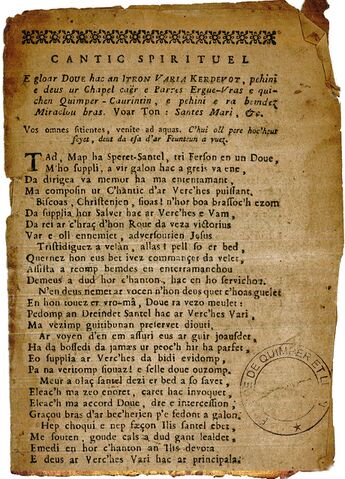 CANTIC SPIRITUEL
E gloar Doue hac an ITRON VARIA KERDEVOT, pehini
e deus ur Chapel caër e Parres Ergue-Vras e qui-
chen Quimper-Caurintin, e pehini e ra bemdez
Miraclou bras. Voar Ton: Santes Mari, &c.
Vos omnes sitientes, venite ad aquas. C'hui oll pere hoc'heus
seyet, deut da efa d'ar Feunteun a vuez.
TAd, Map ha Speret-Santel, tri Ferson en un Doue,
M'ho suppli, a vir galon hac a greis va ene,
Da dirigea va memor ha ma entertamant,
Ma composin ur C'hantic d'ar Verc'hes puissant,
Biscoas, Christenien, sioas! n'hor boa brassoc'h ezom
Da supplia hor Salver hac ar Verc'hes e Vam,
Da rei ar c'hraç d'hon Roue da veza victorius
Var e oll ennemiet, adversourien Jesus
Tristidiguez a velan, allas! pell so er bed,
Quernez hon eus bet ivez commançet da velet,
Assista a reomp bemdez en enterramanchou
Demeus a dud hor c'hanton, hac en ho servichou.
N'en deus nemet ar vocen n'hon deus quet c'hoas guelet
En hon touez er vro-mâ, Doue ra vezo meulet:
Pedomp an Dreindet Santel hac ar Verc'hes Vari,
Ma vezimp guitibunan preservet diouti,
Ar voyen d'en em assuri eus ar guir joausdet,
Ha da bossedi da jamais ur peoc'h hir ha parfet,
Eo supplia ar Verc'hes da bidi evidomp,
Pa na veritomp siouaz! e selle doue ouzomp.
Meur a olaç santel dezi er bed a so savet,
Eleac'h ma zeo enoret, caret hac invoquet,
Eleac'h ma accord Doue, dre e intercession,
Graçou bras d'ar bec'herien p'e fedont a galon.
Hep choqui e nep fæçon Ilis santel ebet,
Me souten, goude cals a dud gant lealdet,
Emedi en hor c'hanton an Ilis devota
E deus ar Verc'hes Vari hac ar principala.
E DE QUIMPER ET L